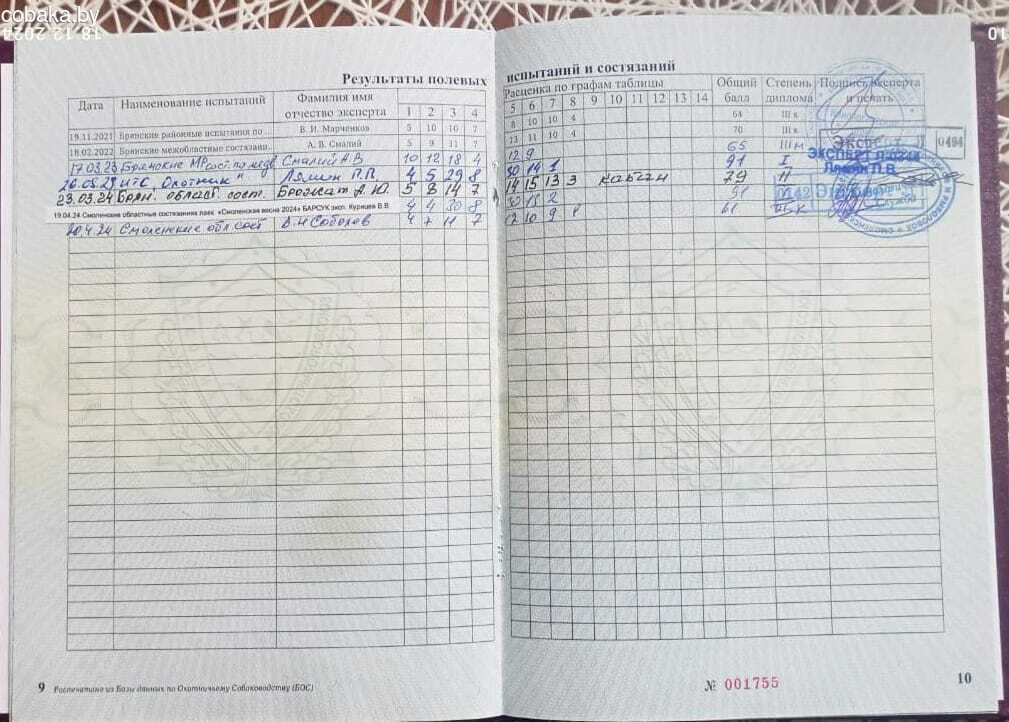 cobaka.by
18.12.2024
10
Результаты полевых испытаний и состязаний
Дата Наименование испытаний Фамилия имя отчество эксперта Расценка по графам таблицы Общий балл Степень диплома Подпись эксперта и печать
1 2 3 4 5 6 7 8 9 10 11 12 13 14
19.11.2021 Брянские районные испытания по ... В. И. Марченков 5 10 10 7 8 10 10 4 64 III к
18.02.2022 Брянские межобластные состязани... А. В. Смалий 5 9 11 7 13 11 10 4 70
17.03.23 Брянские МР сост по медв Смалий А В 10 12 18 4 12 9 65 III м
Ляшин П.П. 4 5 29 8 30 14 1 91 I
23.03.24 Брян. област. сост. 5 8 14 7 14 15 13 3 кабан 79 II
19.04.24 Смоленские областные состязания лаек «Смоленская весна 2024» БАРСУК эксп. Курицев В.В. 4 4 30 8 30 13 2 91
20.4.24 Смоленские обл сост В.Н Соболов 4 7 11 7 12 10 9 61
0494
9 Распечатано из Базы данных по Охотничьему Собаководству (БОС)
№ 001755
10